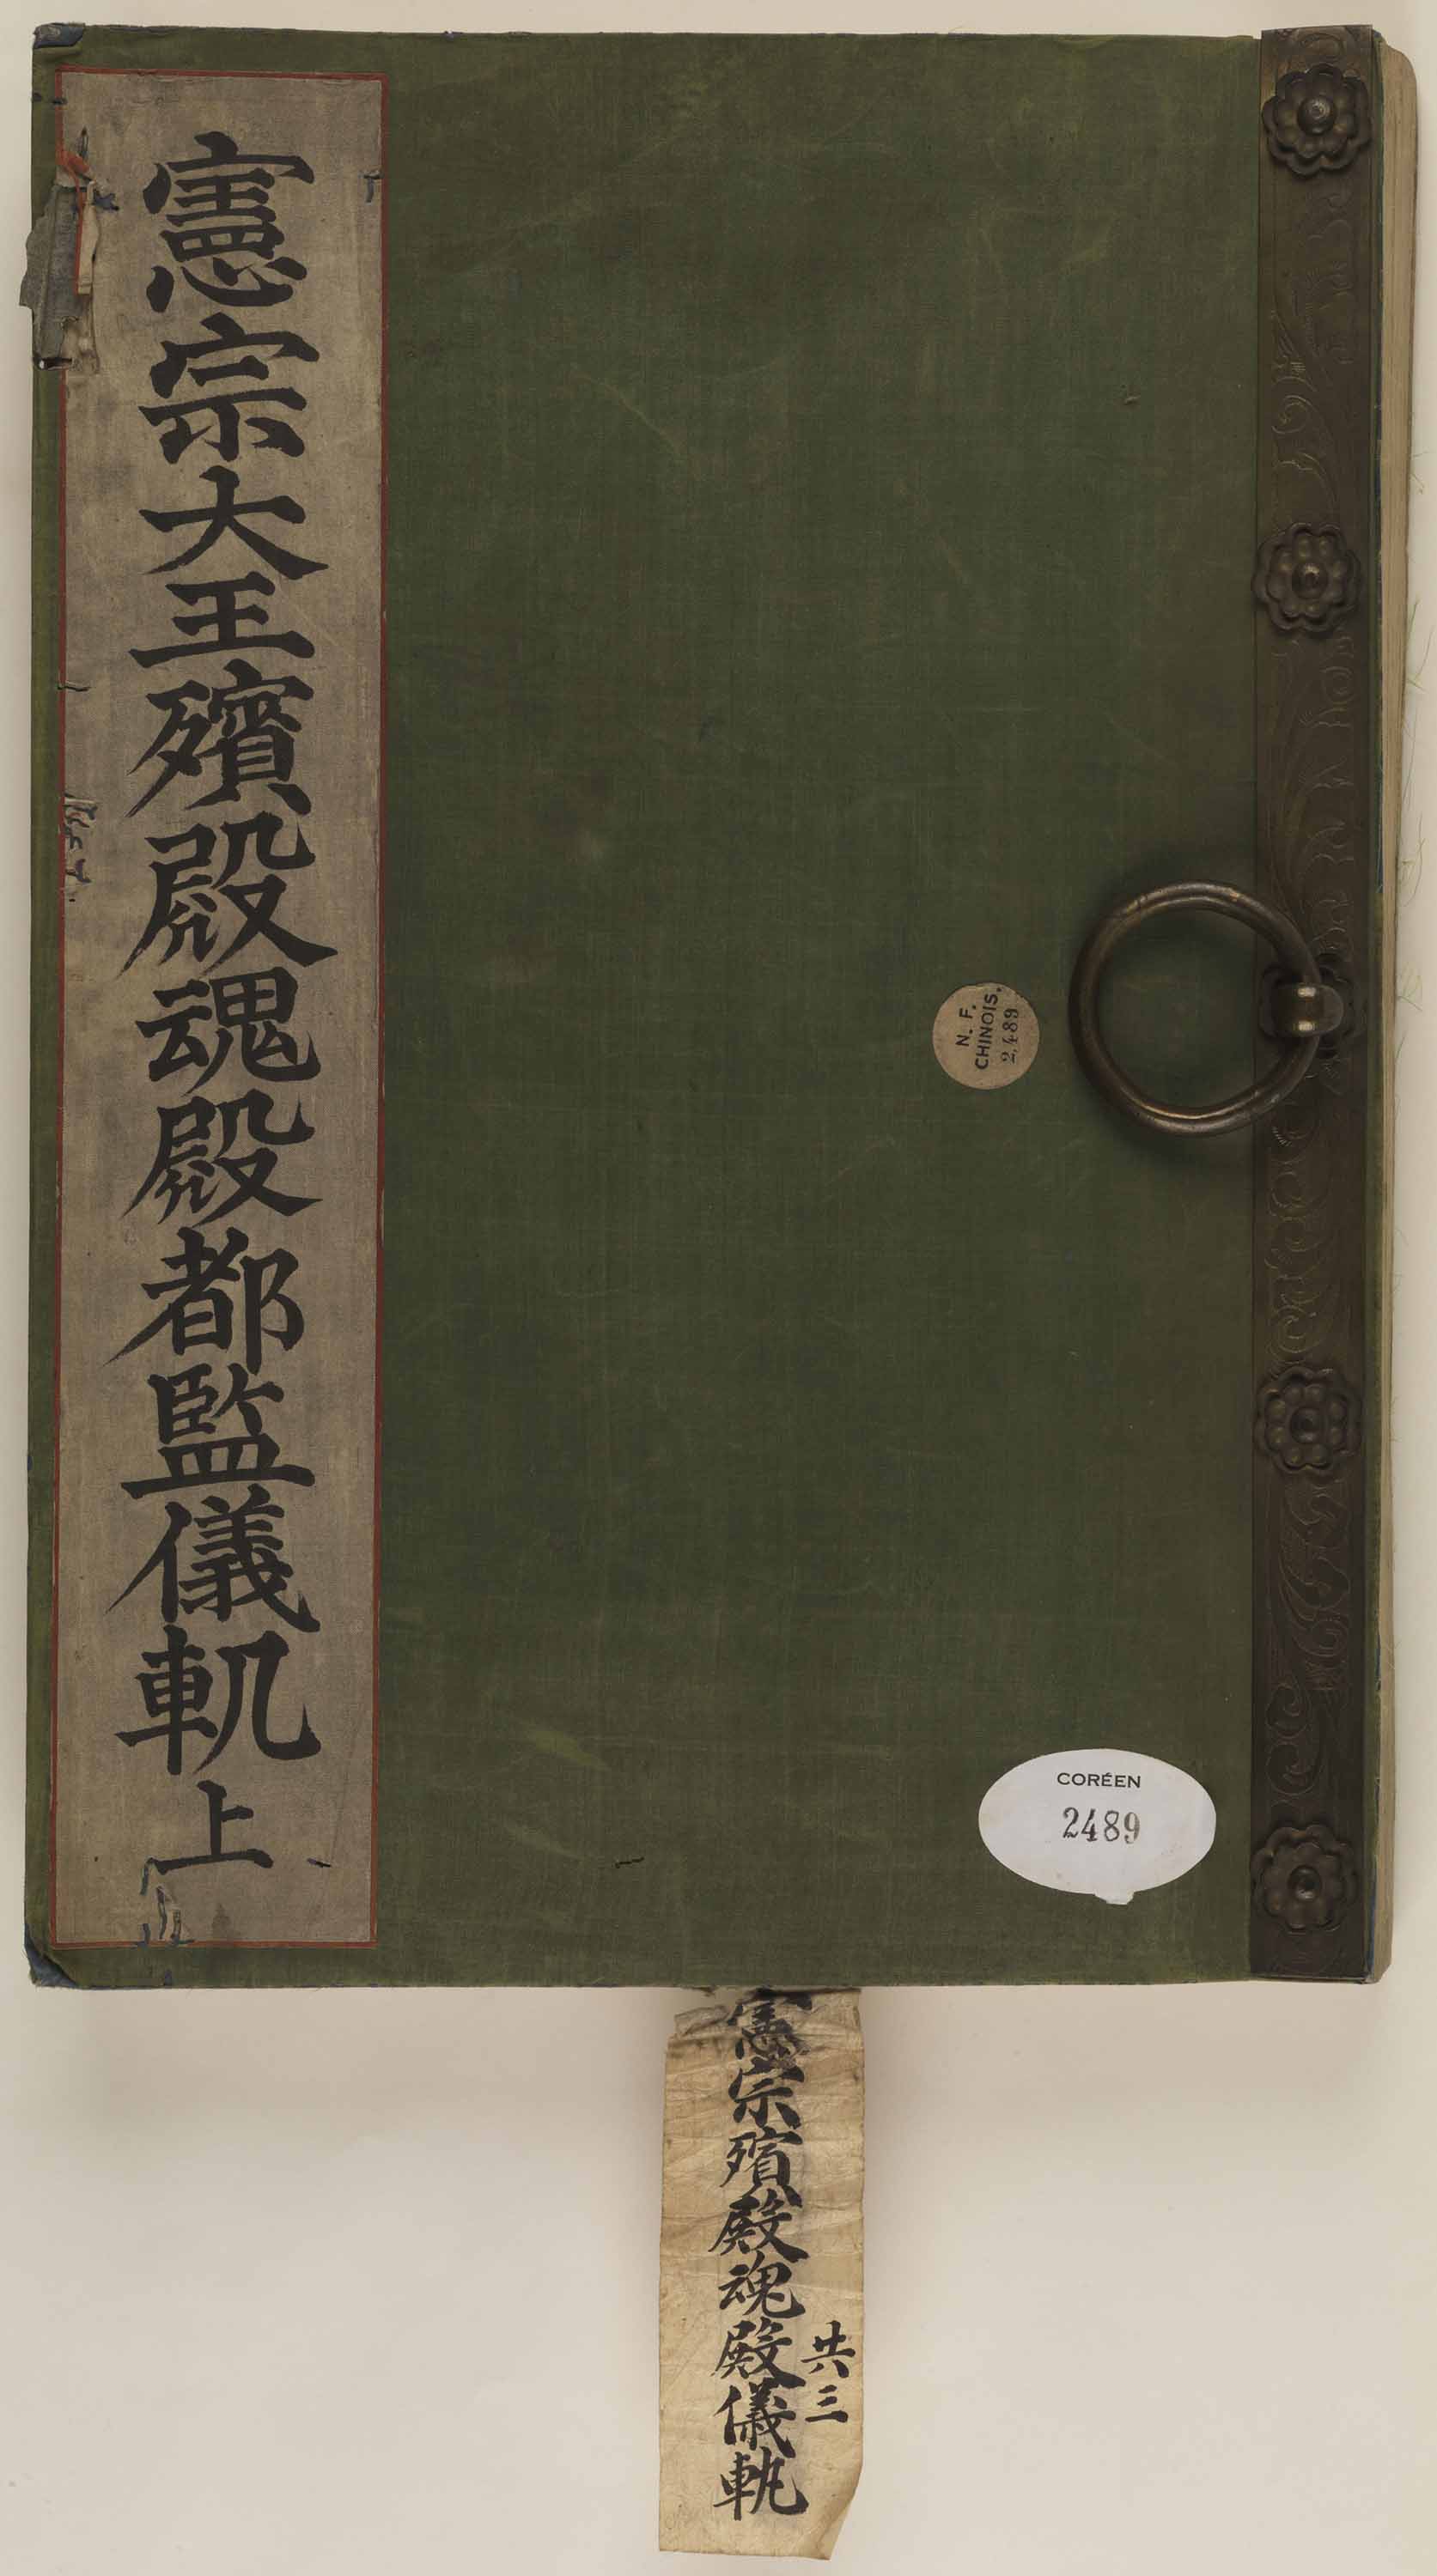 憲宗大王殯殿魂殿都監儀軌上
N. F.
CHINOIS.
2489
CORÉEN
2489
憲宗殯殿魂殿儀軌
共三